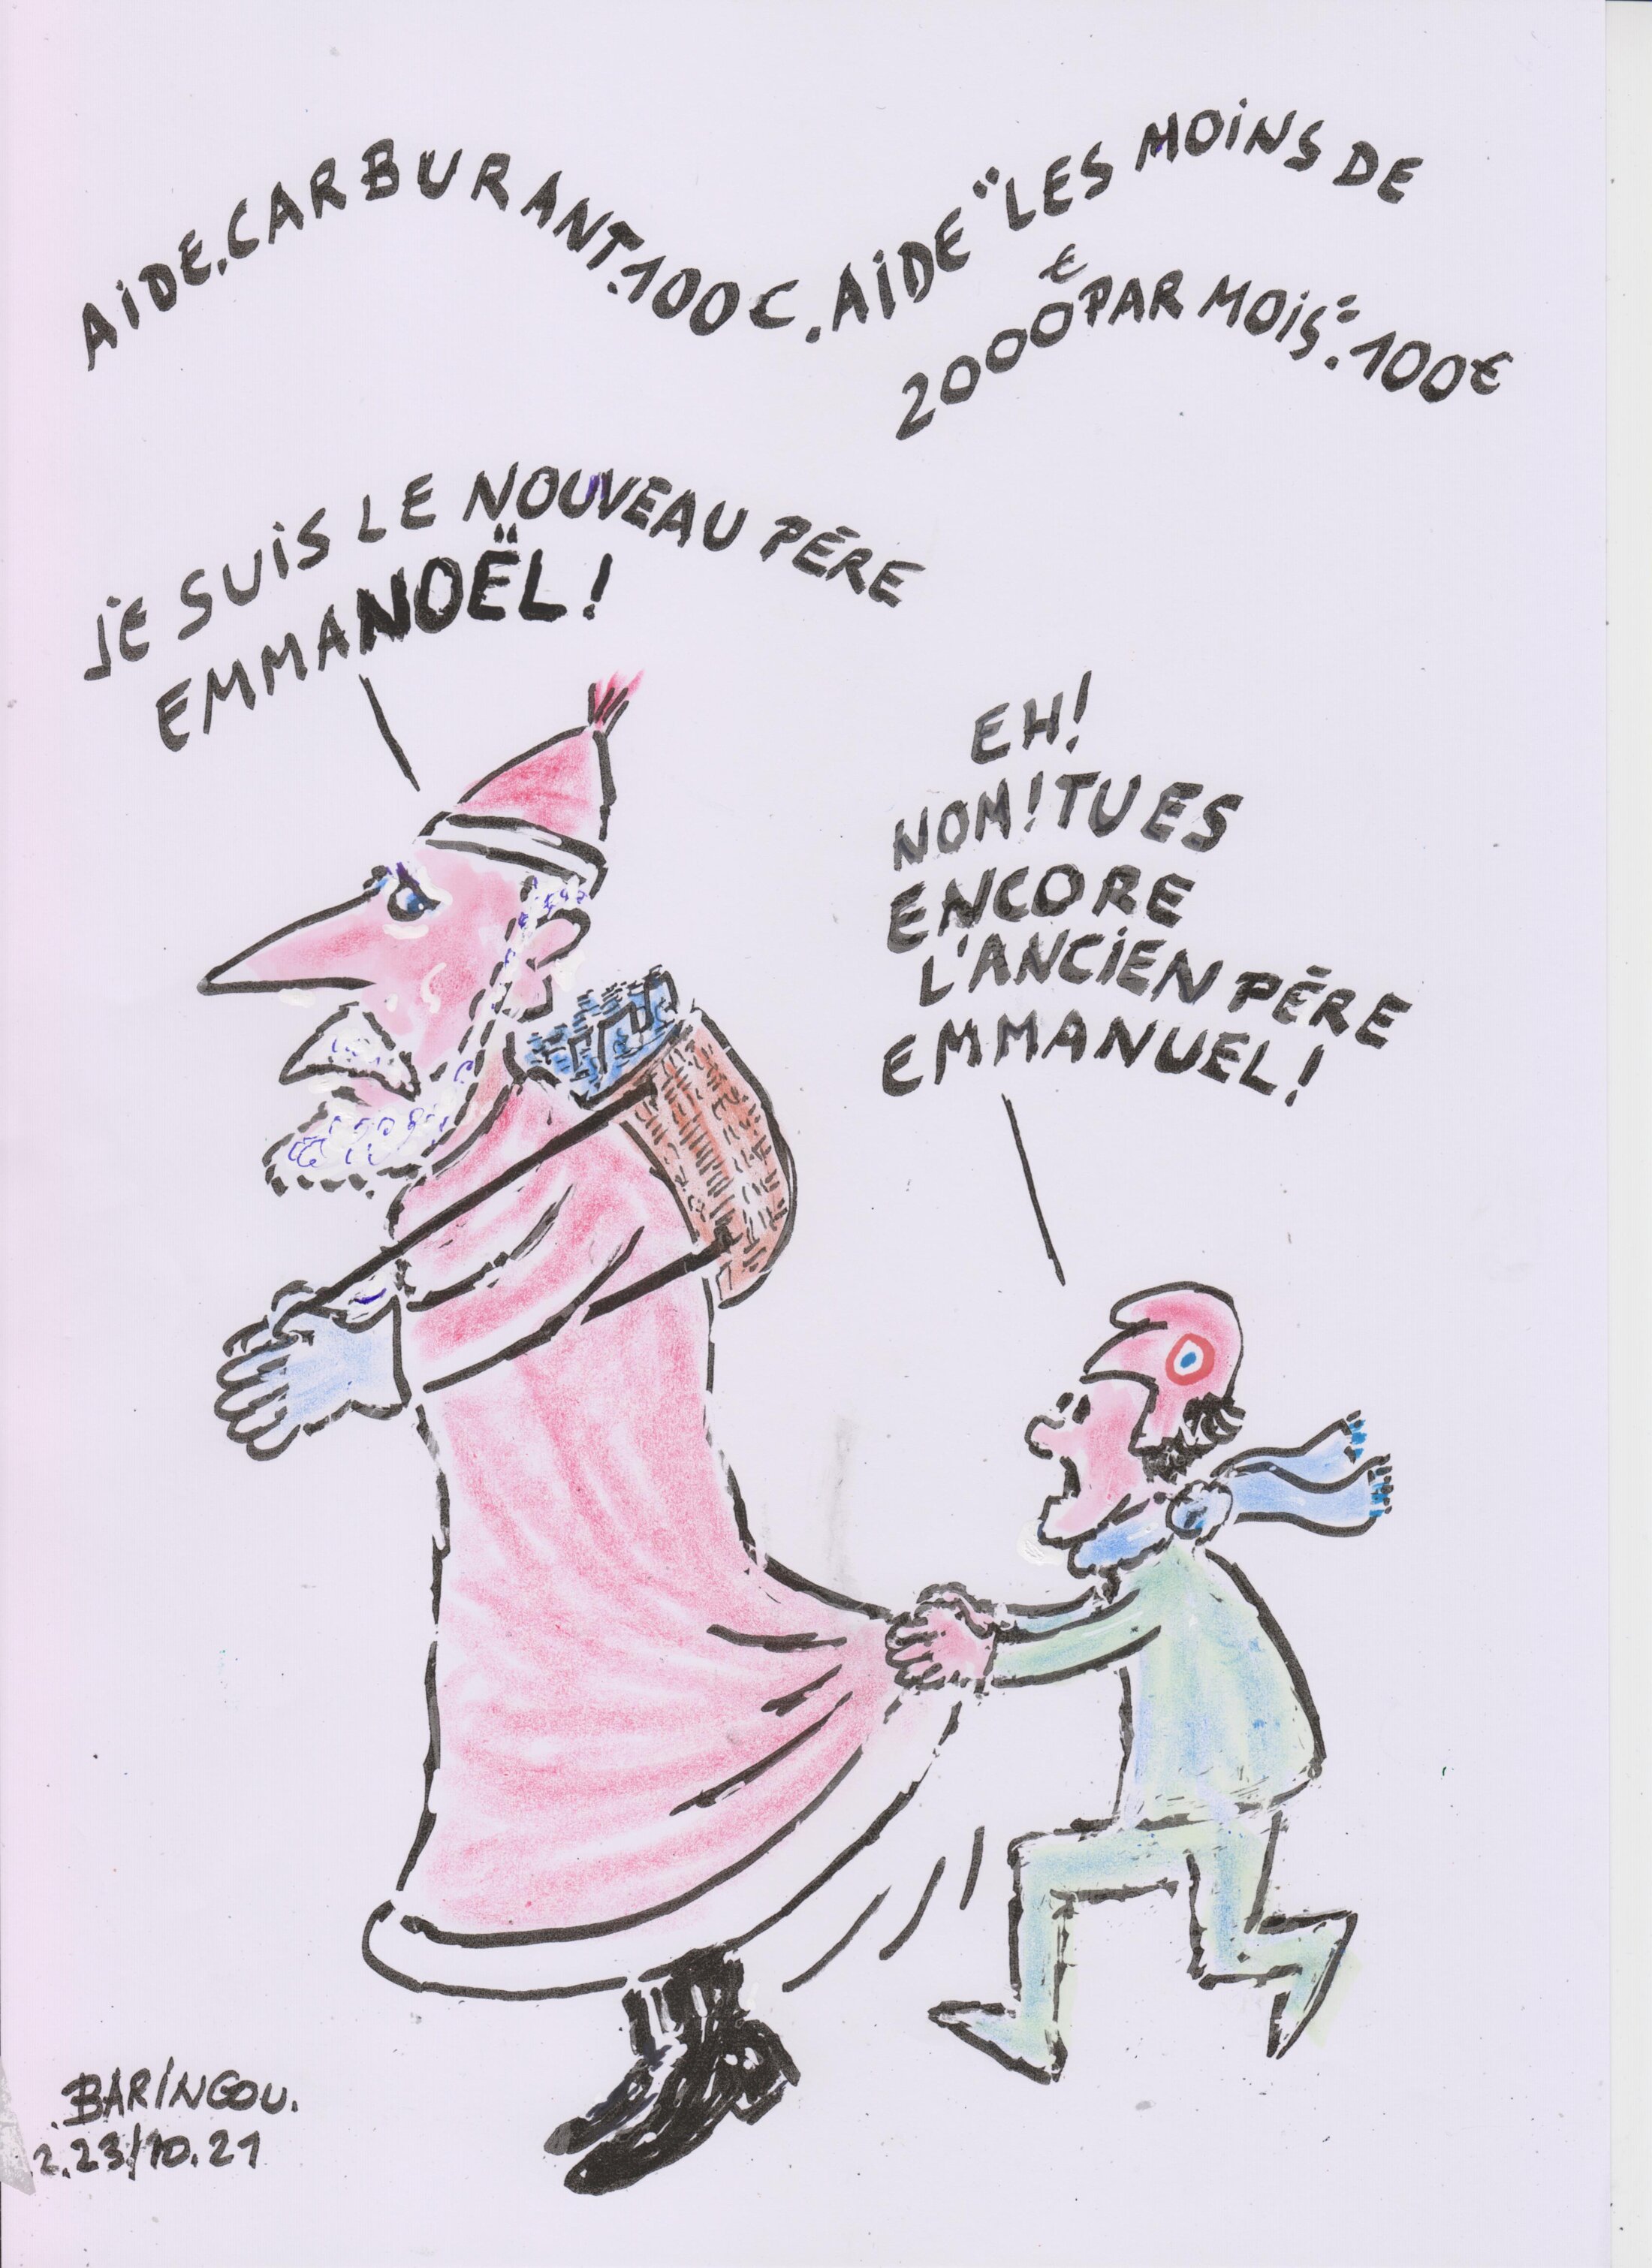 AIDE.CARBURANT.100 C. AIDE "LES MOINS DE
2000€ PAR MOIS": 100€
JE SUIS LE NOUVEAU PÈRE
EMMANOËL!
EH!
NOM! TU ES
ENCORE
L'ANCIEN PÈRE
EMMANUEL!
BARINGOU.
2.23/10.21